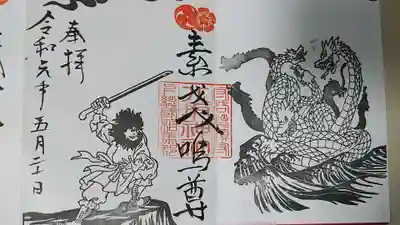 素戔嗚尊
奉拝
令和元年五月二十日